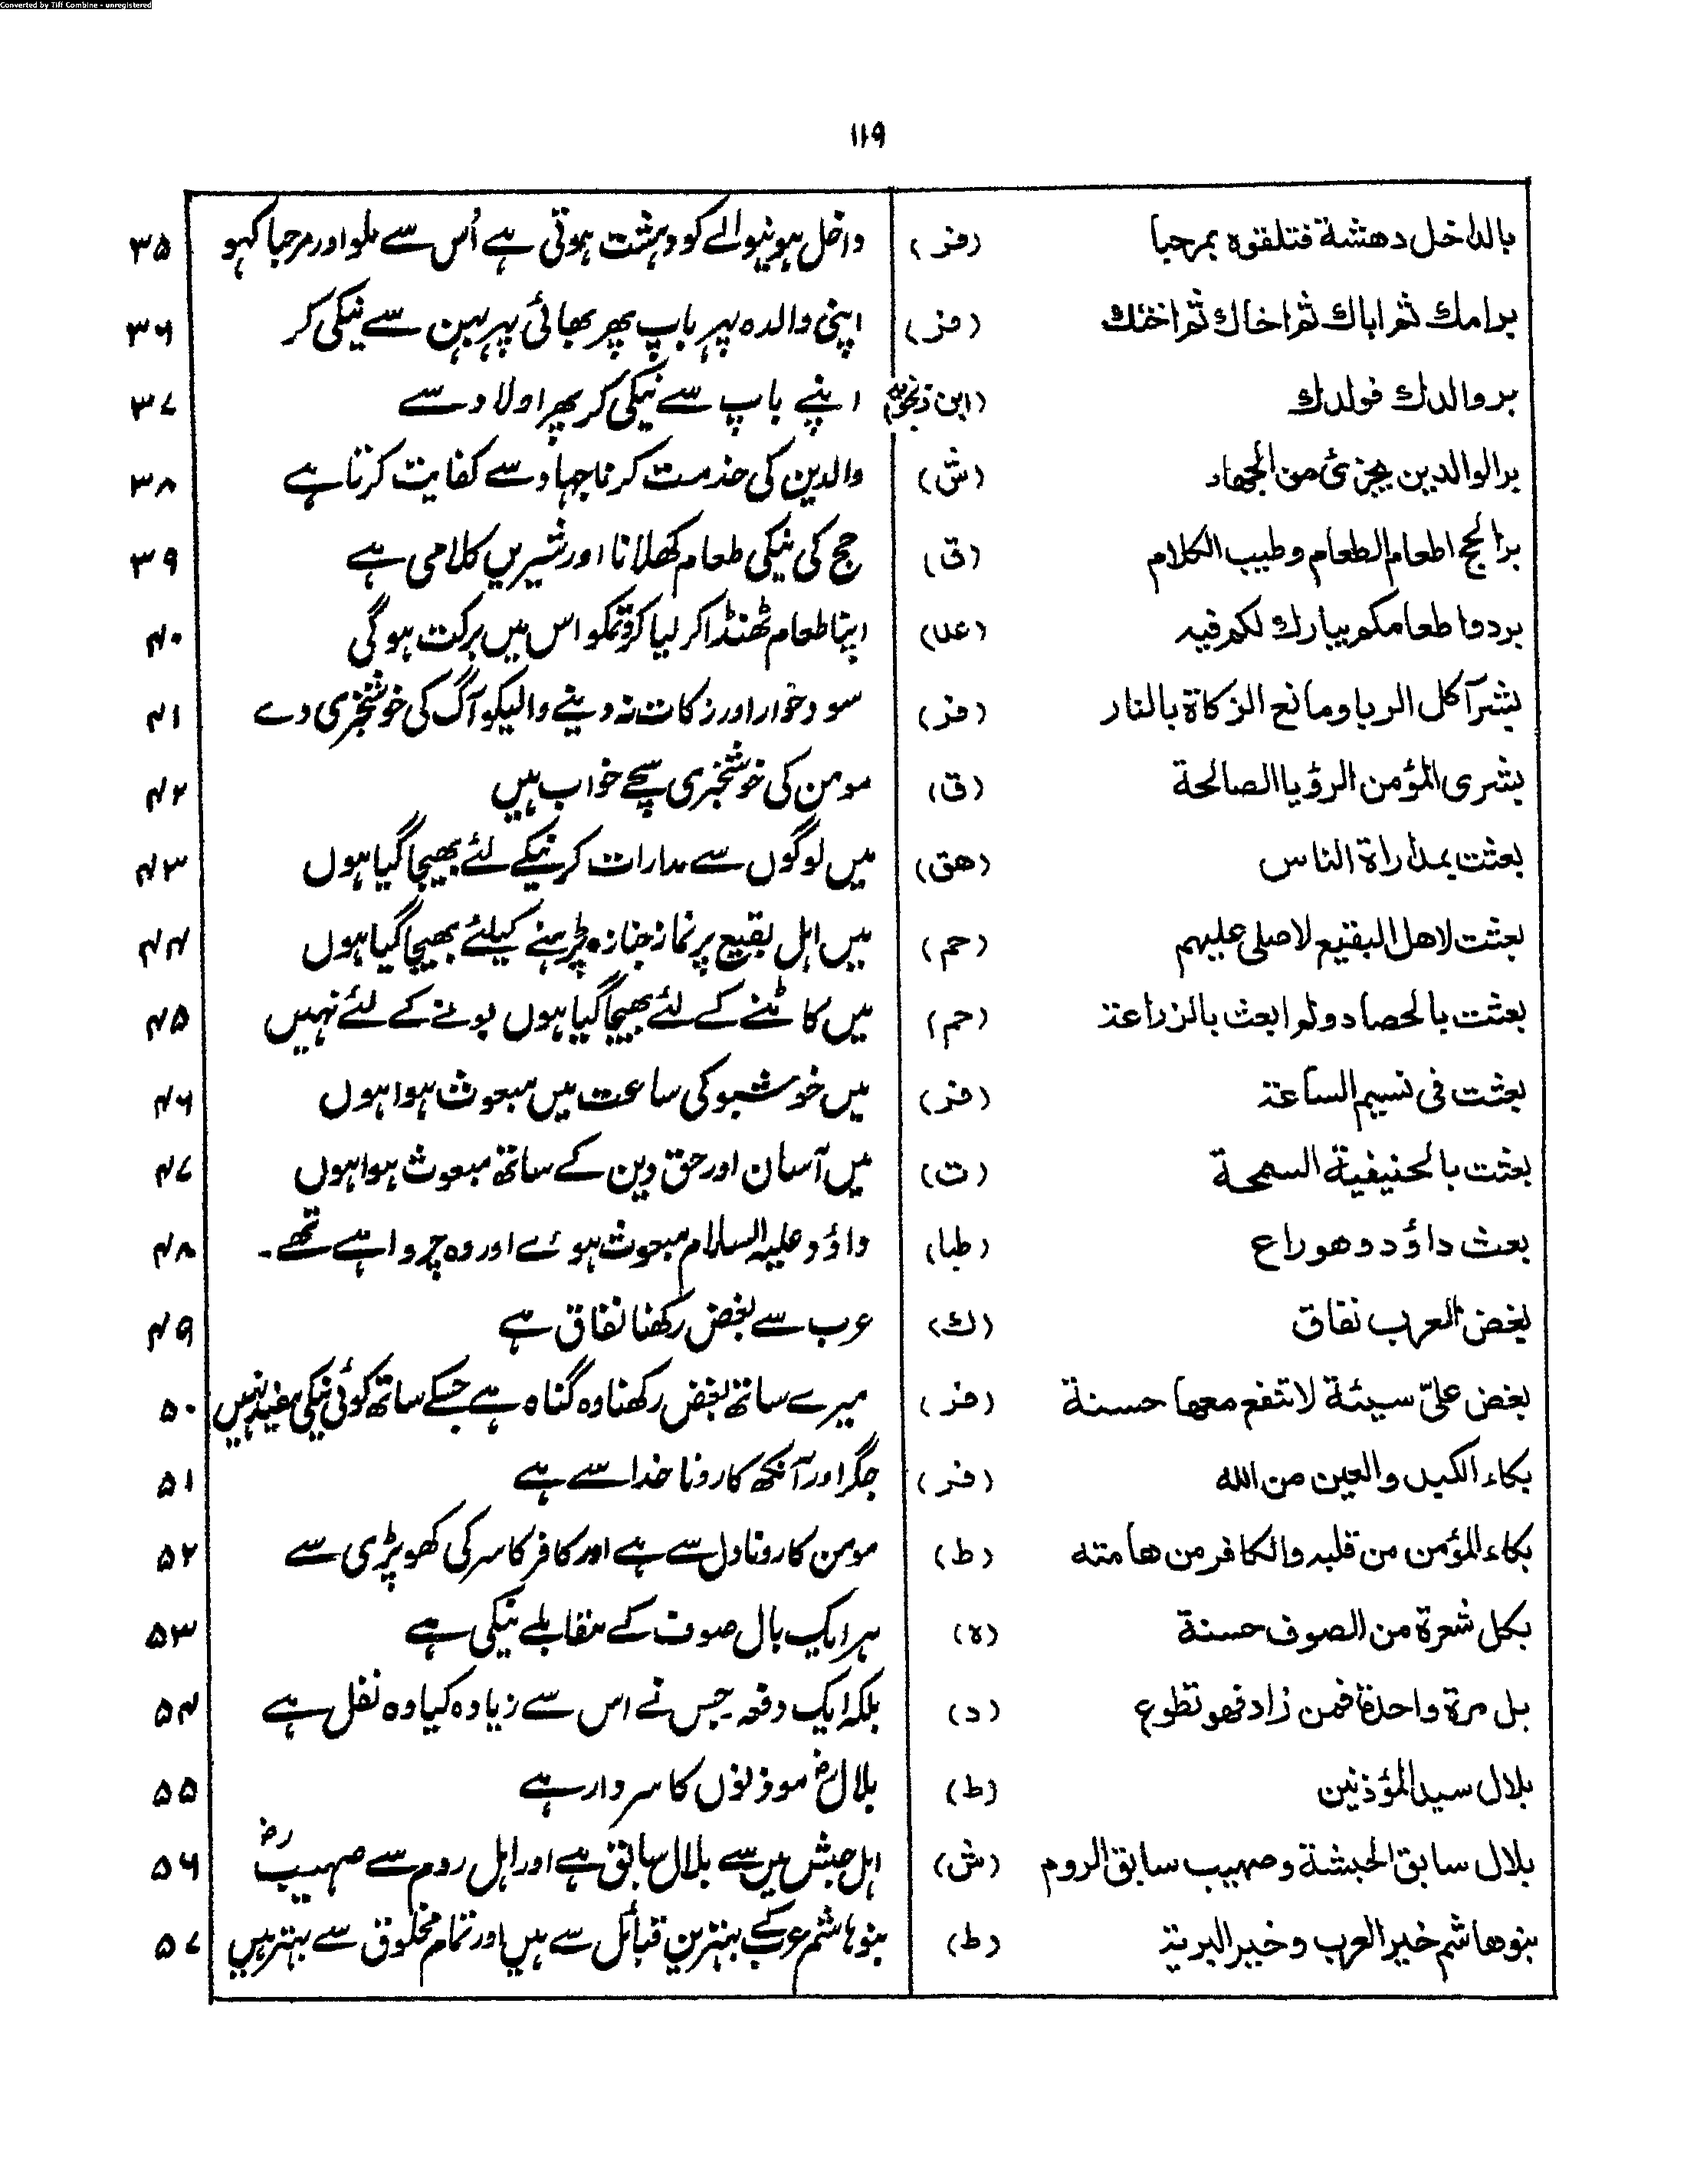 Converted by Tiff Combine - unregistered
۱۱۹
بالداخل دهشة فتلقوه بمرحبا (فر) داخل ہونیوالے کو دہشت ہوتی ہے اُس سے ملو اور مرحبا کہو ۳۵
بر امك ثم اباك ثم اخاك ثم اختك (فر) اپنی والدہ پہر باپ پھر بھائی پہر بہن سے نیکی کر ۳۶
بر والدك فولدك (ابن زنجویہ) اپنے باپ سے نیکی کر پھر اولاد سے ۳۷
بر الوالدين يجزئ من الجهاد (ش) والدین کی خدمت کرنا جہاد سے کفایت کرتا ہے ۳۸
بر الحج اطعام الطعام وطيب الكلام (ق) حج کی نیکی طعام کھلانا اور شیریں کلامی ہے ۳۹
بردوا طعامكم يبارك لكم فيه (عد) اپنا طعام ٹھنڈا کر لیا کرو تمکو اس میں برکت ہوگی ۴۰
بشر آكل الربا ومانع الزكاة بالنار (فر) سود خوار اور زکات نہ دینے والیکو آگ کی خوشخبری دے ۴۱
بشرى المؤمن الرؤيا الصالحة (ق) مومن کی خوشخبری سچے خواب ہیں ۴۲
بعثت بمداراة الناس (هق) میں لوگوں سے مدارات کرنیکے لئے بھیجا گیا ہوں ۴۳
بعثت لاهل البقيع لاصلى عليهم (حم) میں اہل بقیع پر نماز جنازہ پڑہنے کیلئے بھیجا گیا ہوں ۴۴
بعثت بالحصاد ولم ابعث بالزراعة (حم) میں کاٹنے کے لئے بھیجا گیا ہوں بونے کے لئے نہیں ۴۵
بعثت فى نسيم الساعة (فر) میں خوشبو کی ساعت میں مبعوث ہوا ہوں ۴۶
بعثت بالحنيفية السمحة (ت) میں آسان اور حق دین کے ساتھ مبعوث ہوا ہوں ۴۷
بعث داؤد وهو راع (طبا) داؤد علیہ السلام مبعوث ہوئے اور وہ چرواہے تھے۔ ۴۸
بغض العرب نفاق (ك) عرب سے بغض رکھنا نفاق ہے ۴۹
بغض علىّ سيئة لا تنفع معها حسنة (فر) میرے ساتھ بغض رکھنا وہ گناہ ہے جسکے ساتھ کوئی نیکی مفید نہیں ۵۰
بكاء الكبد والعين من الله (فر) جگر اور آنکھ کا رونا خدا سے ہے ۵۱
بكاء المؤمن من قلبه والكافر من هامته (ط) مومن کا رونا دل سے ہے اور کافر کا سر کی کھوپڑی سے ۵۲
بكل شعرة من الصوف حسنة (ه) ہر ایک بال صوف کے مقابلے نیکی ہے ۵۳
بل مرة واحدة فمن زاد فهو تطوع (د) بلکہ ایک دفعہ جس نے اس سے زیادہ کیا وہ نفل ہے ۵۴
بلال سيد المؤذنين (ط) بلالؓ موذنوں کا سردار ہے ۵۵
بلال سابق الحبشة وصهيب سابق الروم (ش) اہل حبش میں سے بلال سابق ہے اور اہل روم سے صہیبؓ ۵۶
بنو هاشم خير العرب وخير البرية (ط) بنو ہاشم عرب کے بہترین قبائل سے ہیں اور تمام مخلوق سے بہتر ہیں ۵۷